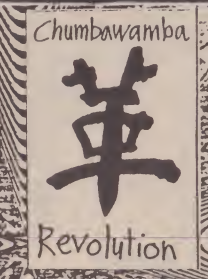 Chumbawamba
革
Revolution